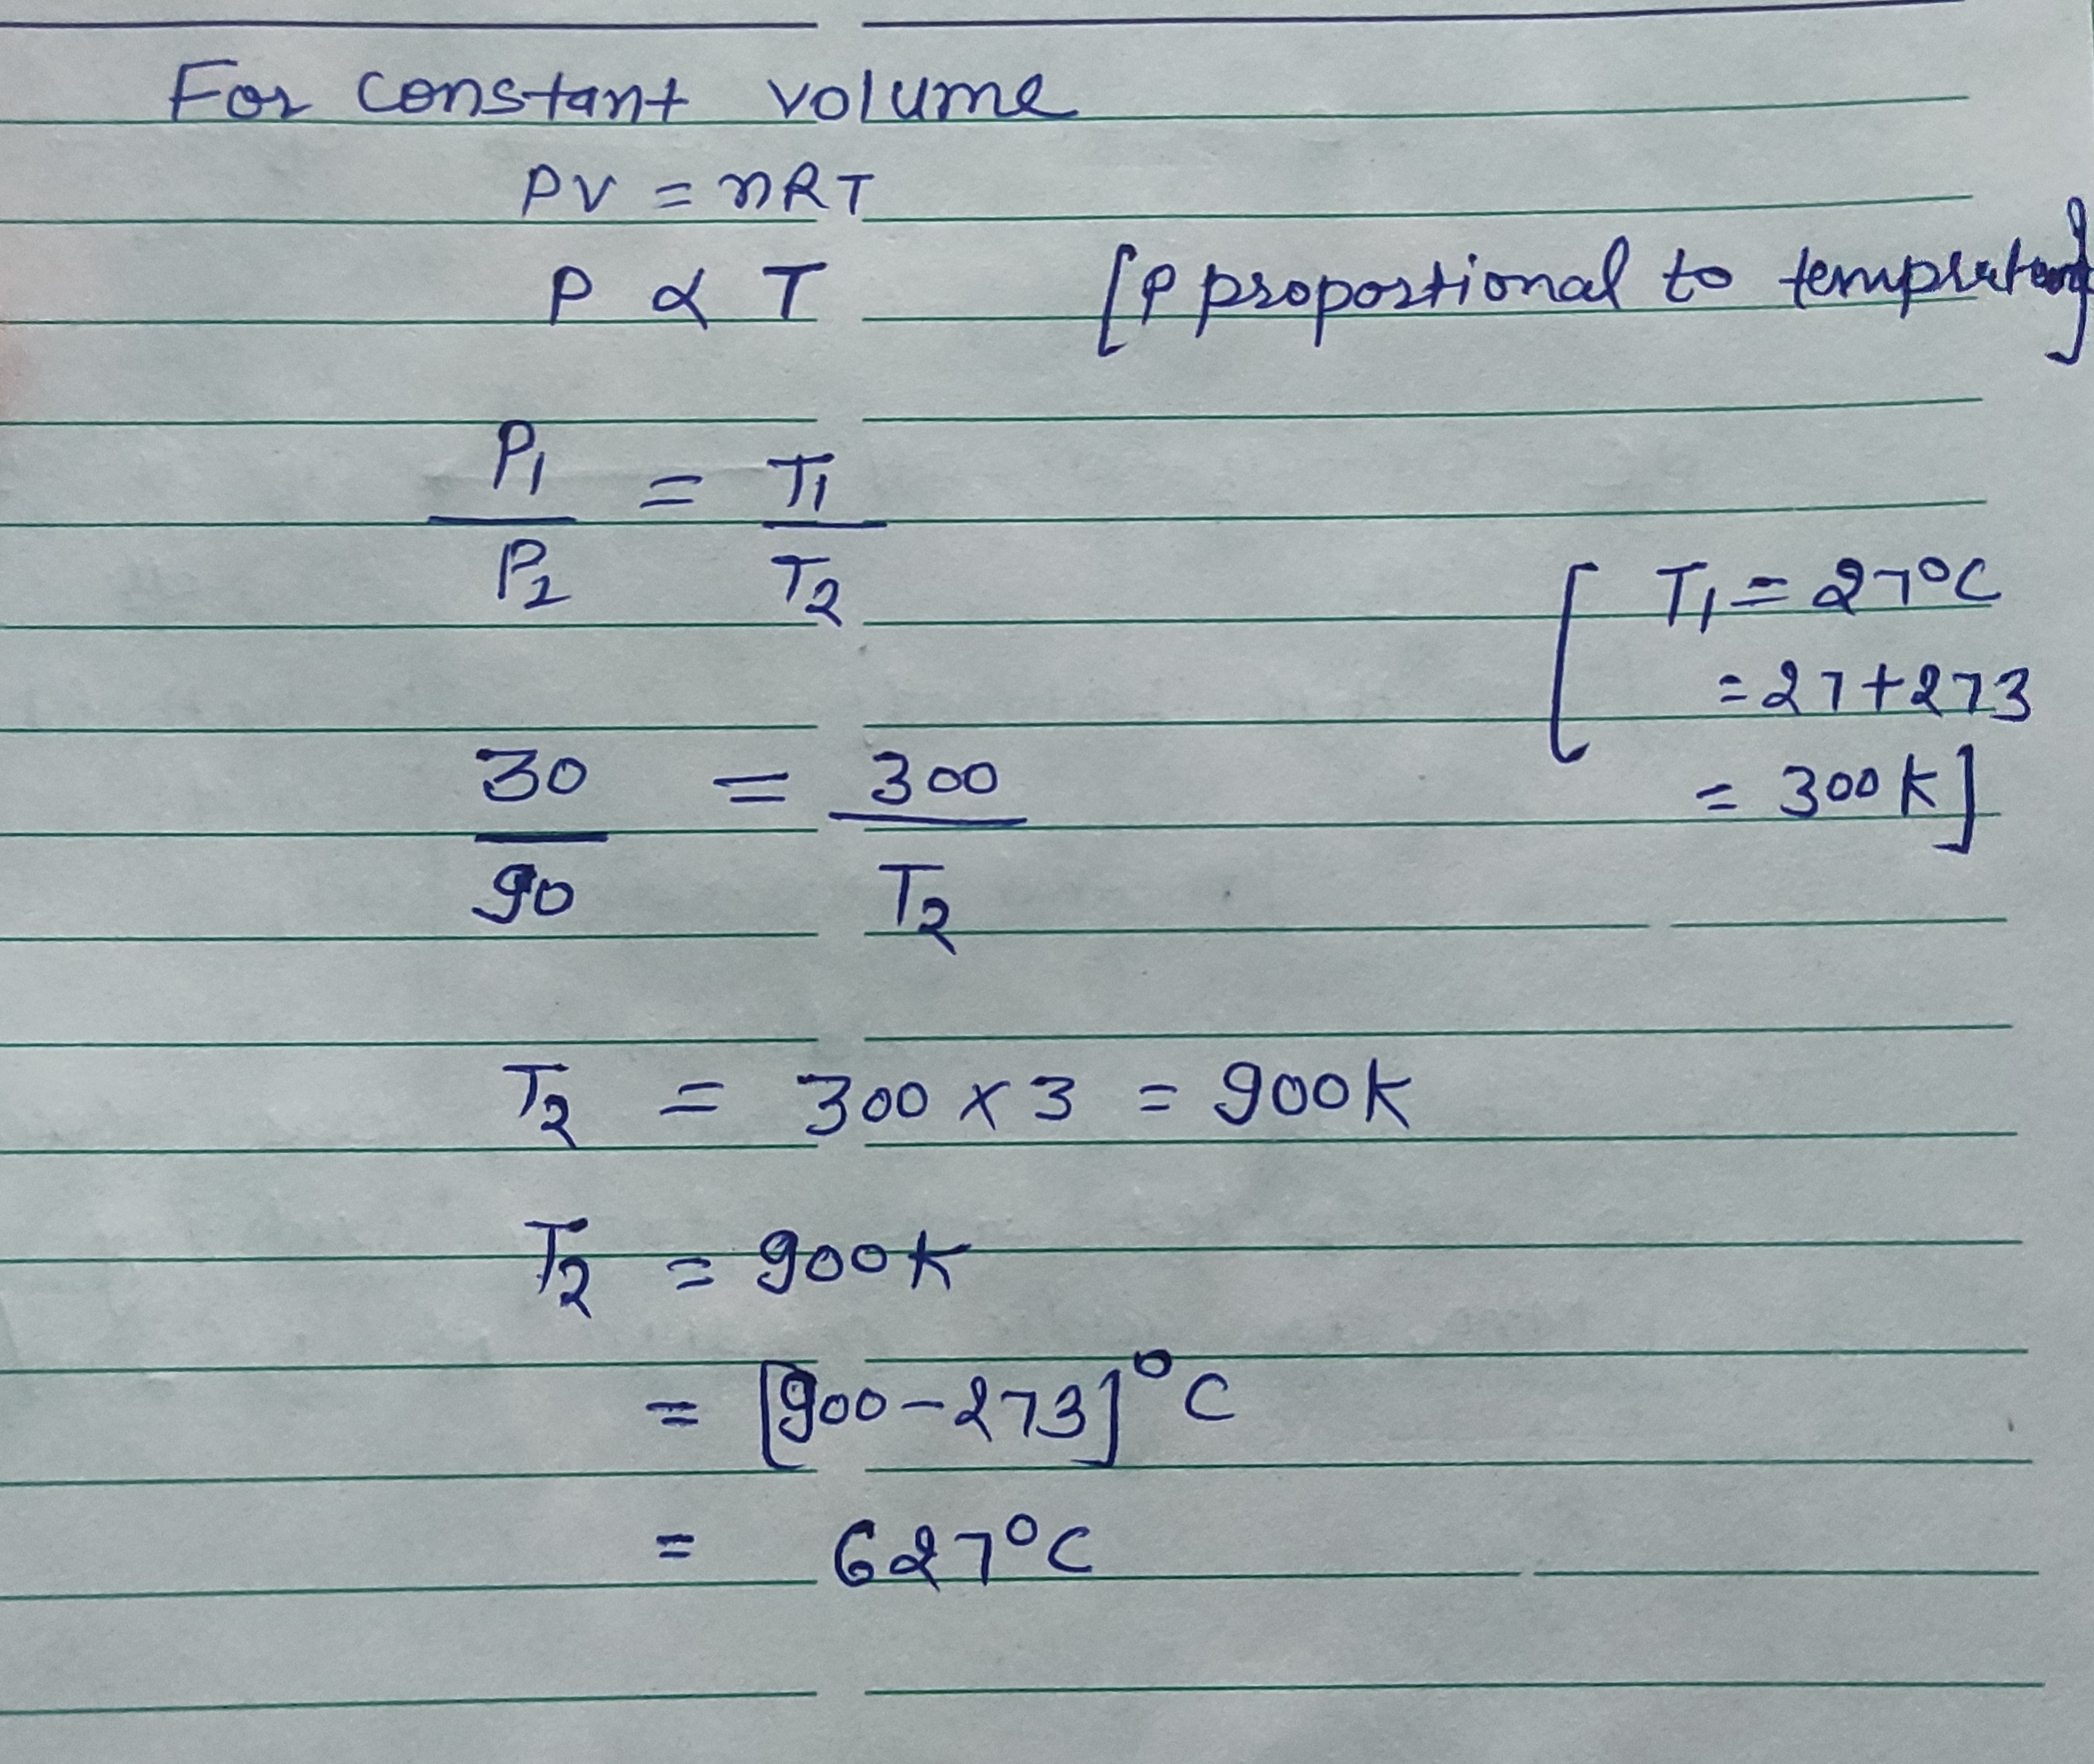 For constant volume
PV = nRT
P α T [P proportional to
P₁ = T₁
P₂ T₂
[T₁ = 27°C
= 27+273
= 300K]
30 = 300
90 T₂
T₂ = 300 x 3 = 900K
T₂ = 900K
= [900-273]°C
= 627°C